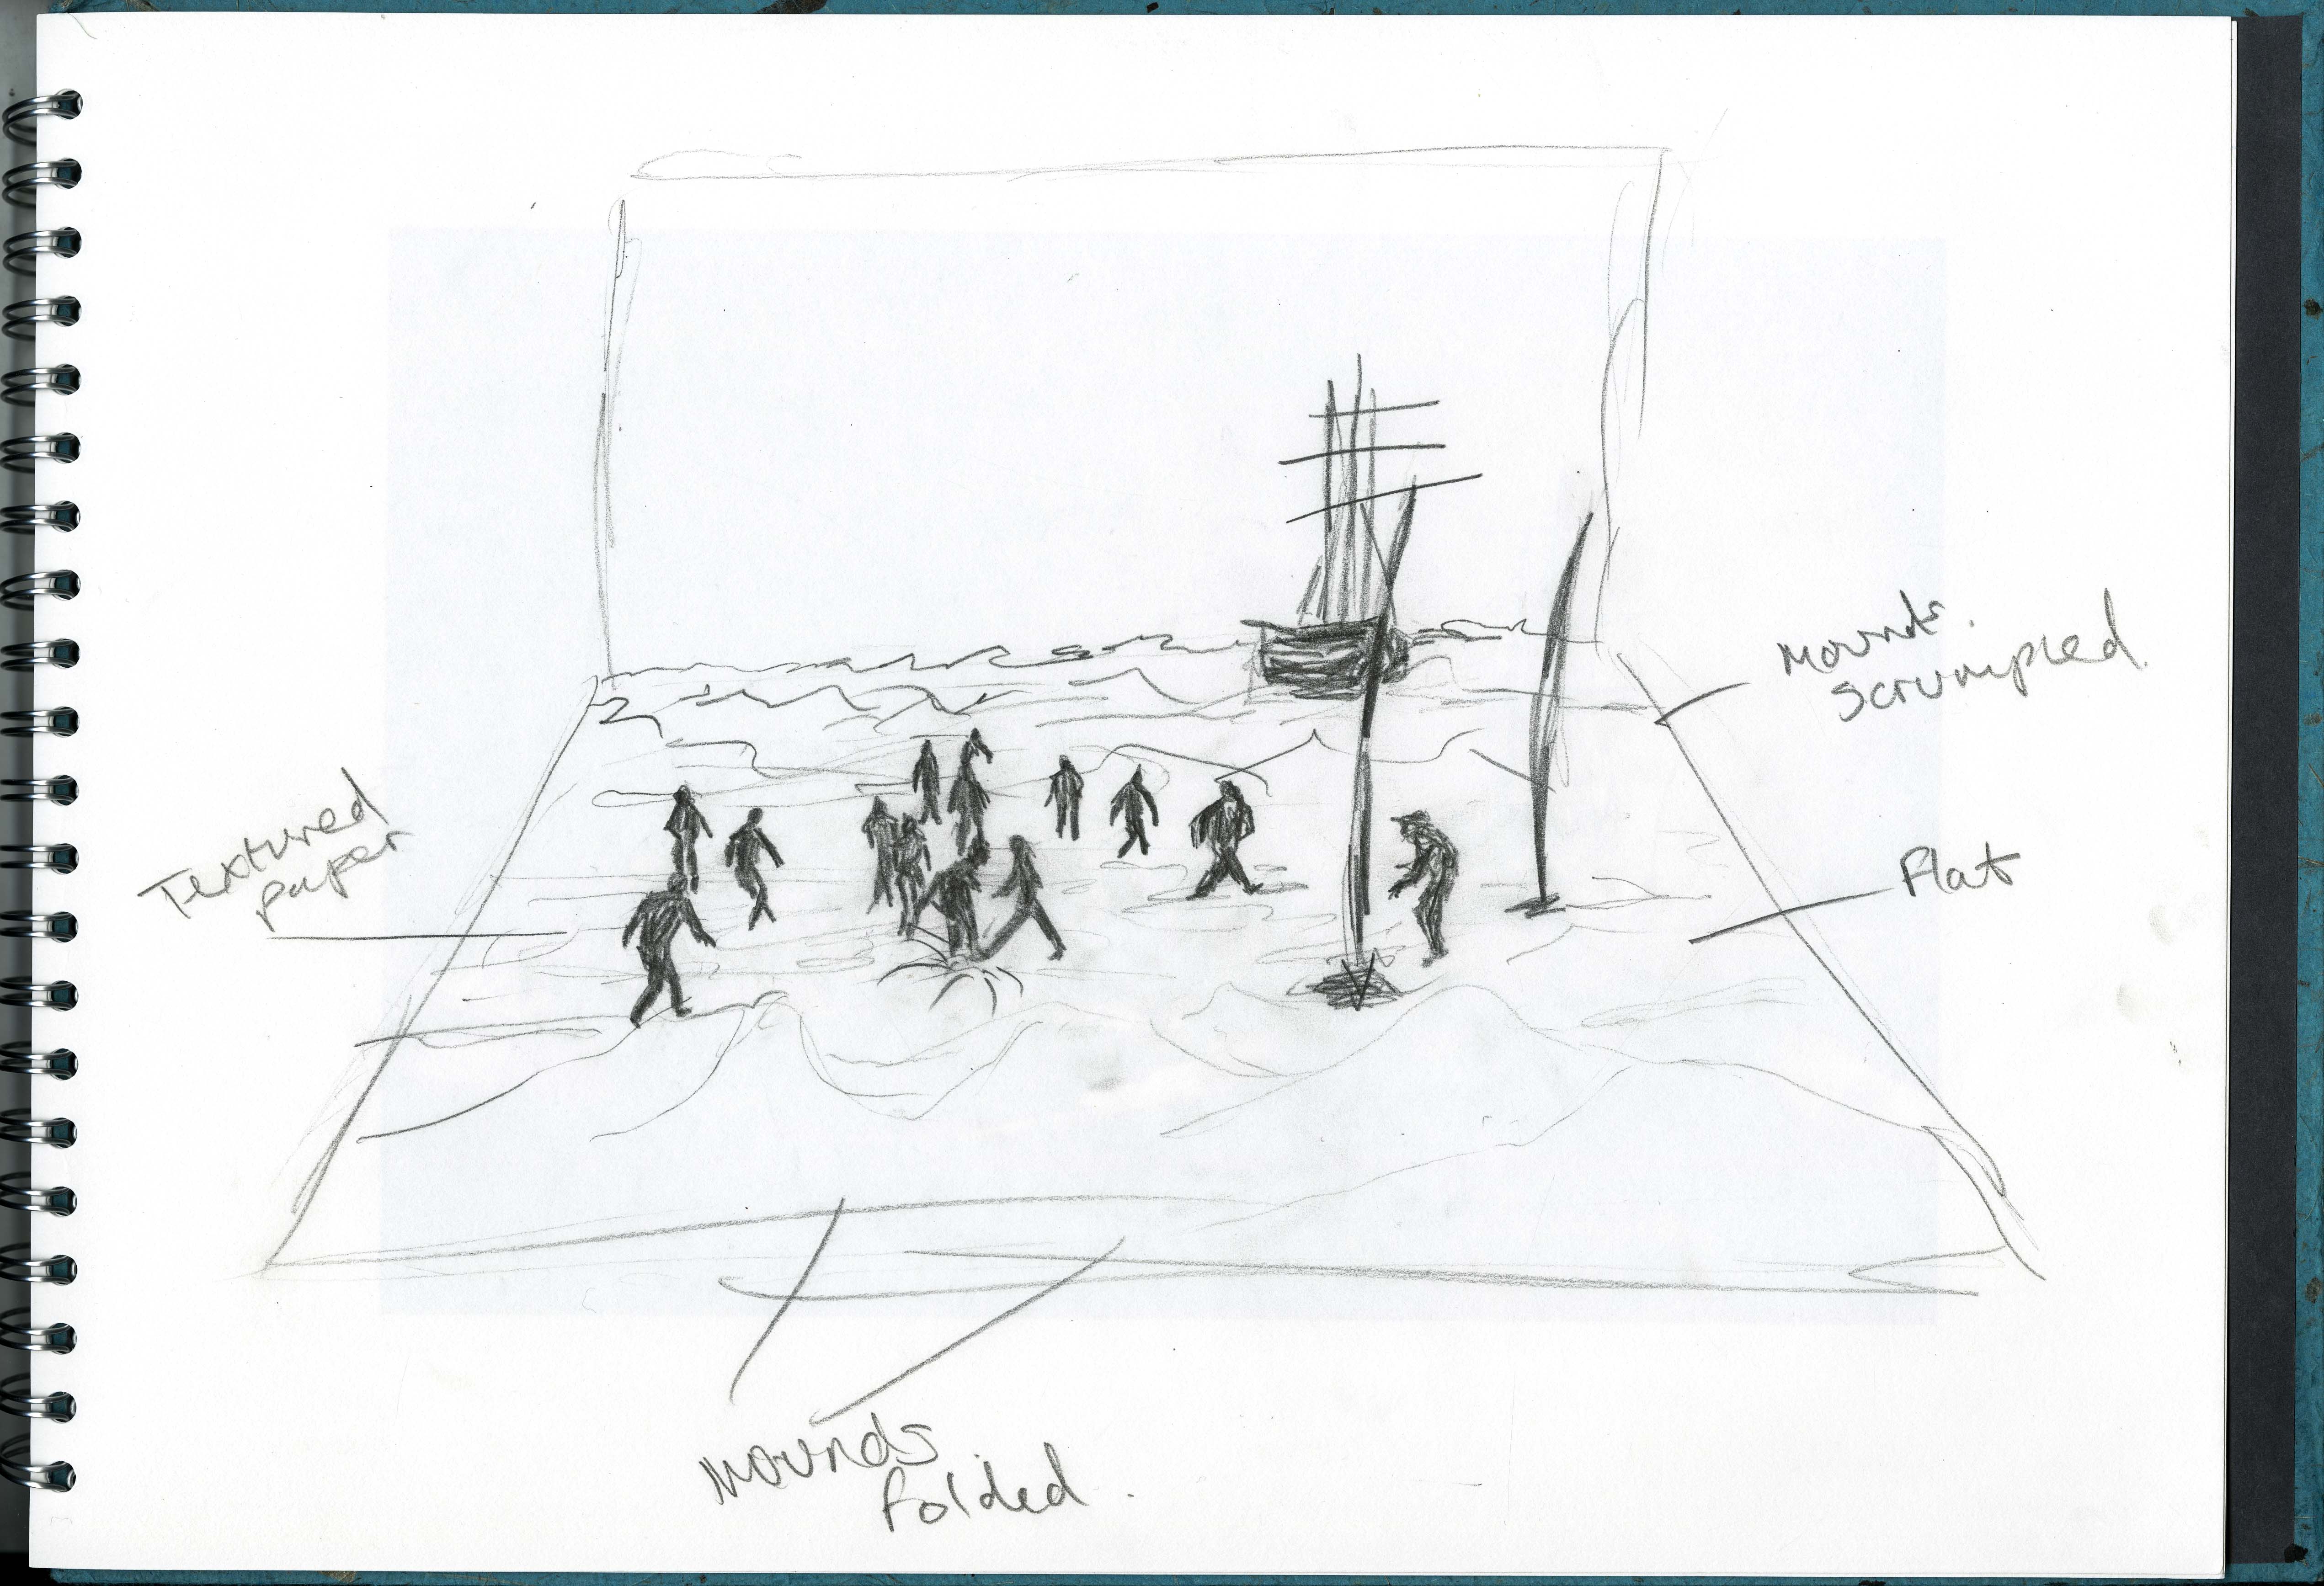 Mounds.
Scrumpled.
Textured
paper
Flat
Mounds
folded.